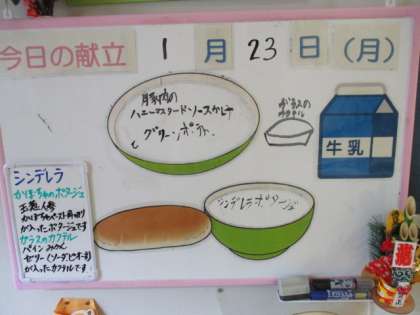 今日の献立 1月23日(月)
豚肉の
ハニーマスタードソースかけ
と
ガラスの
カクテル
牛乳
シンデレラポタージュ
シンデレラ
かぼちゃのポタージュ
玉ねぎ、人参
かぼちゃペースト、角切り
が入ったポタージュです
ガラスのカクテル
パイン みかん
ゼリー(ソーダ・ピオーネ)
が入ったカクテルです